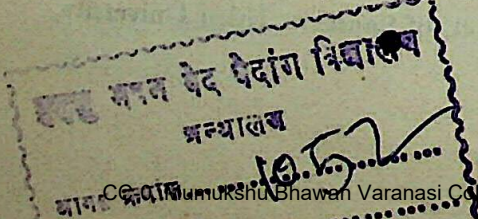 मुमुक्षु भवन वेद वेदांग विद्यालय
ग्रन्थालय
आगत क्रमांक......1052......
CC-0. Mumukshu Bhawan Varanasi Col